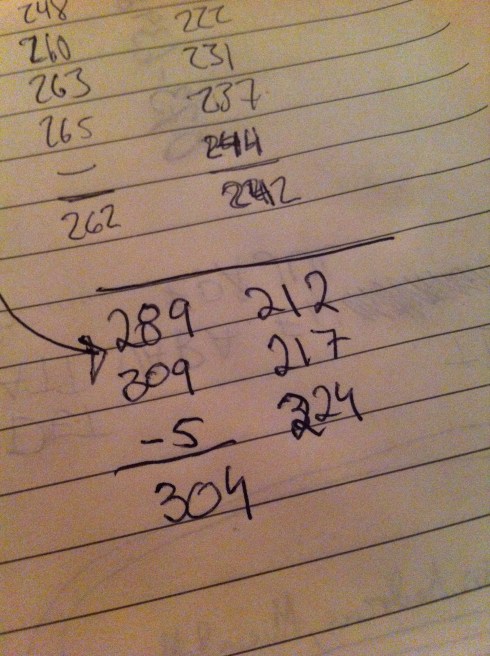 248 222
260 231
263 237
265 244
–
262 2242
289 212
309 217
-5 224
304